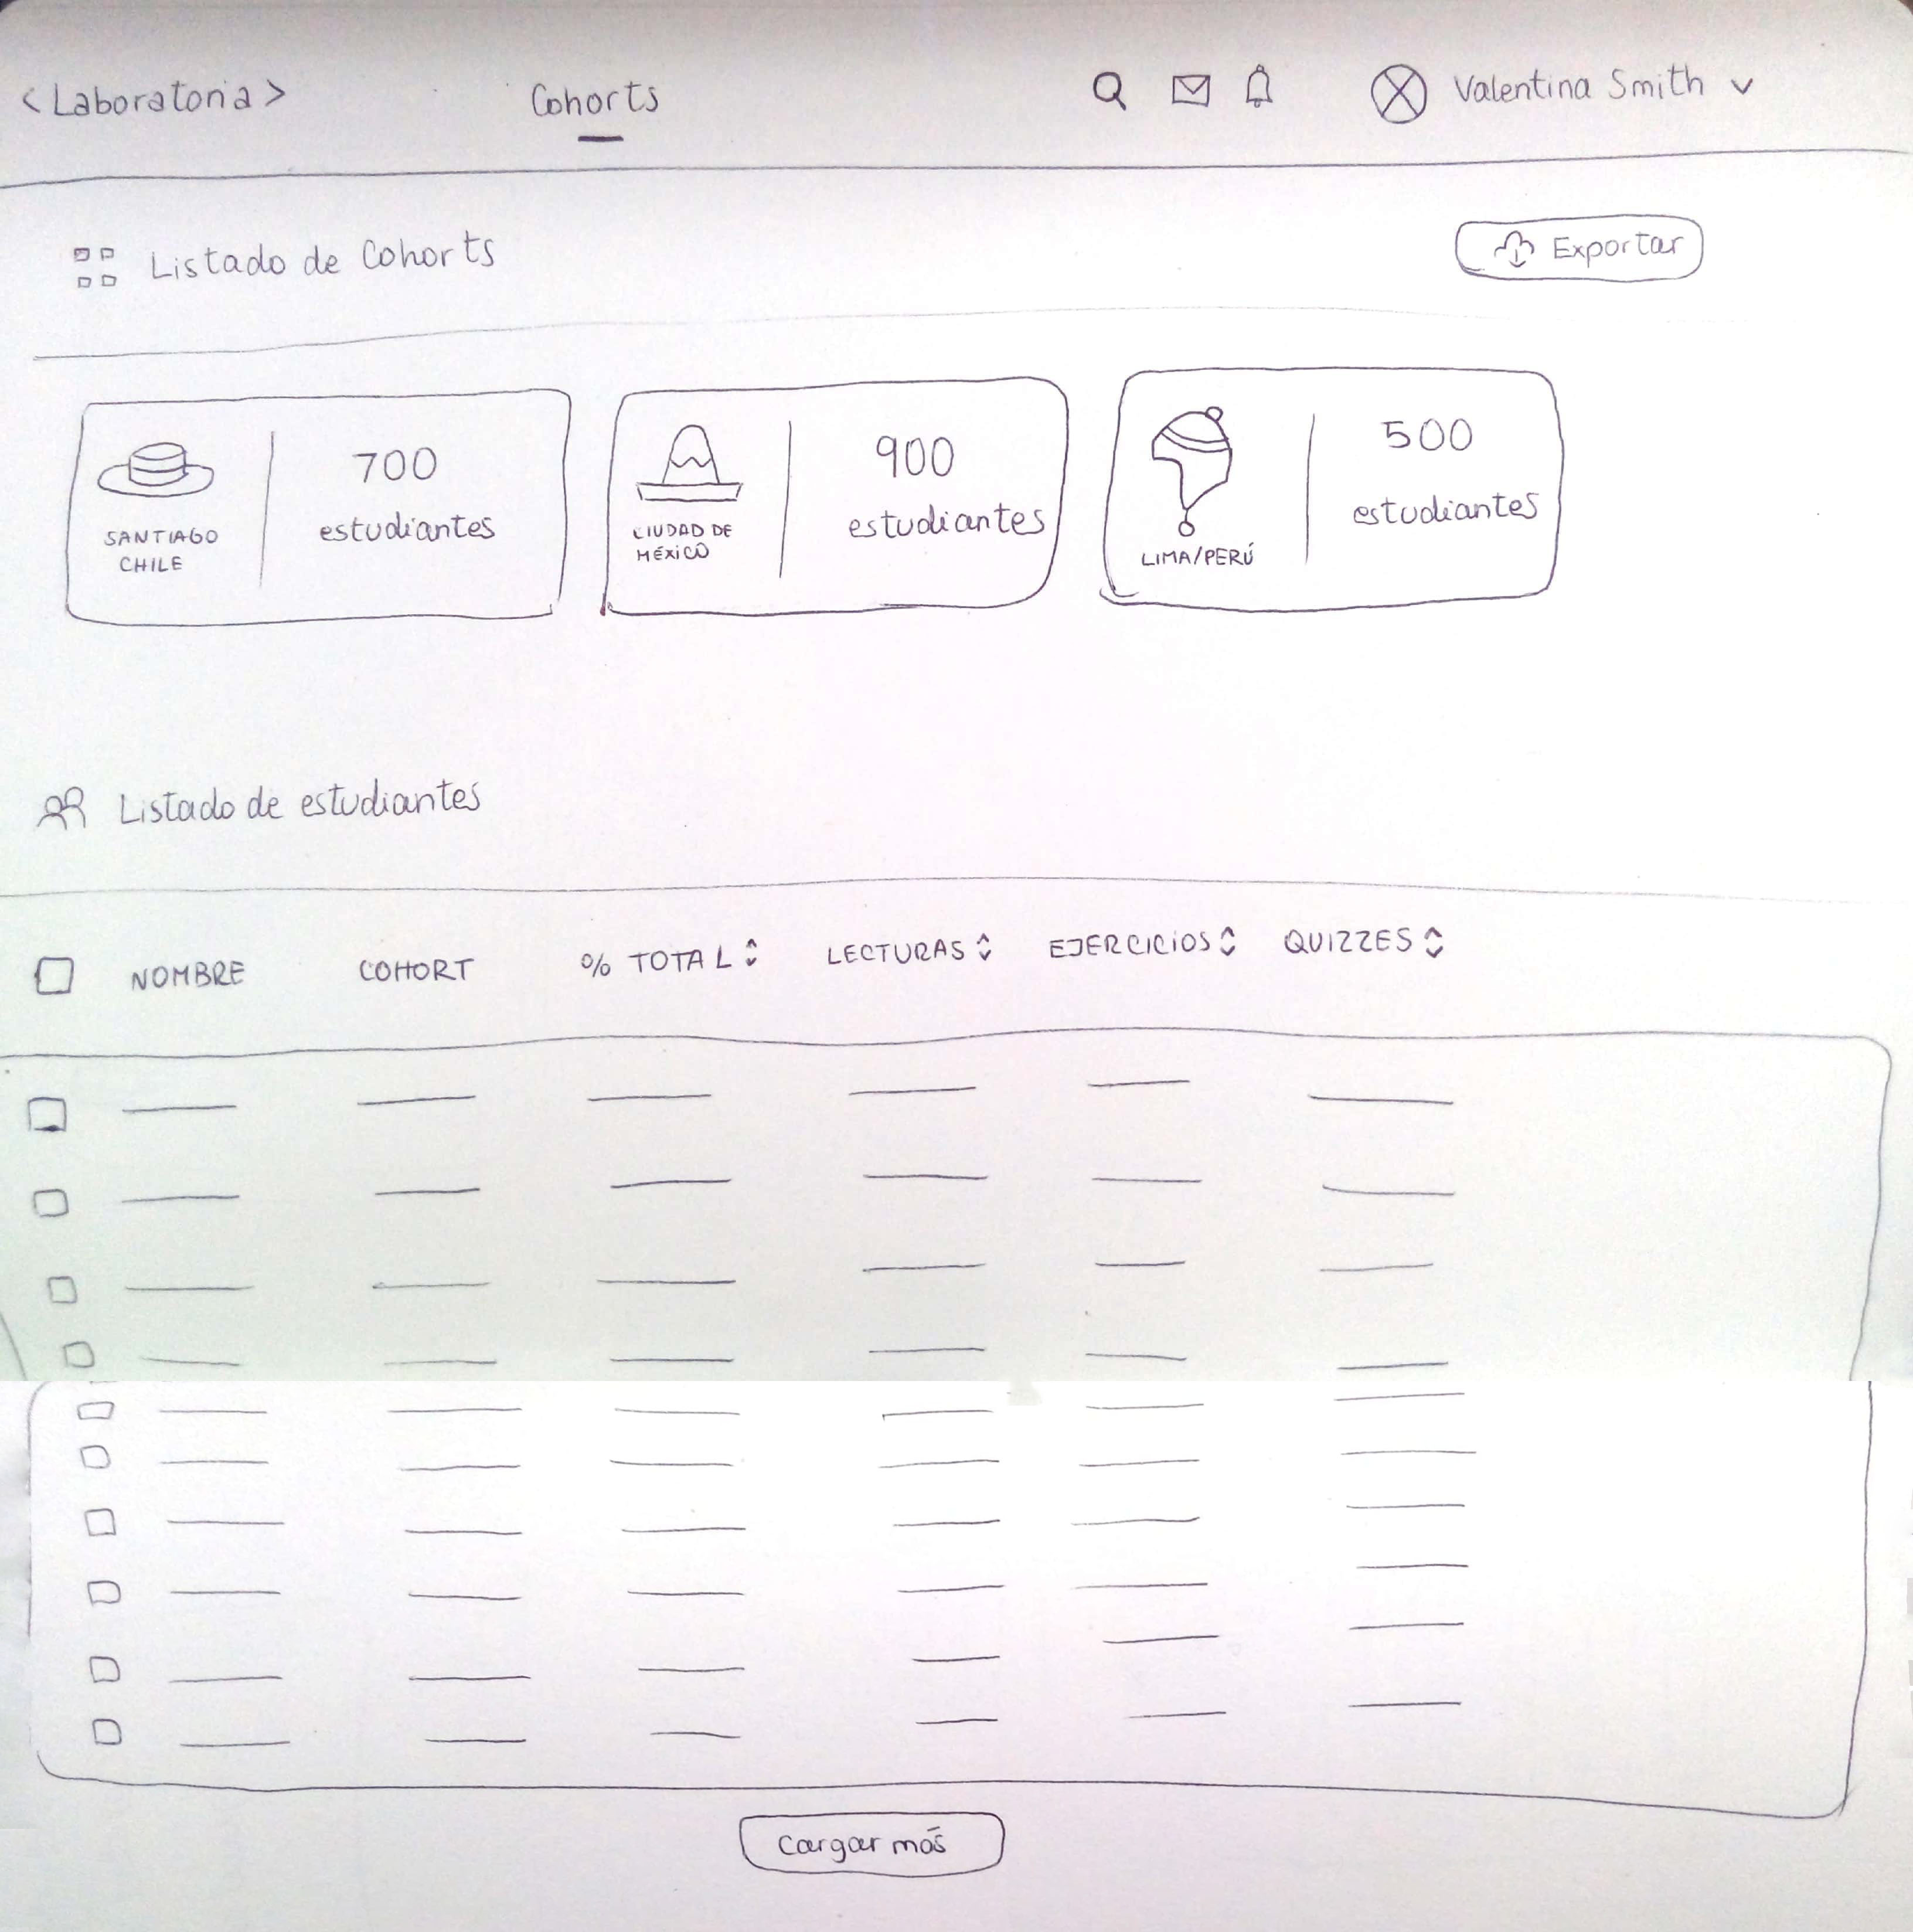 <Laboratoria> Cohorts Valentina Smith
Listado de Cohorts Exportar
700
estudiantes
SANTIAGO
CHILE
900
estudiantes
CIUDAD DE
MÉXICO
500
estudiantes
LIMA/PERÚ
Listado de estudiantes
NOMBRE COHORT % TOTAL LECTURAS EJERCICIOS QUIZZES
Cargar más